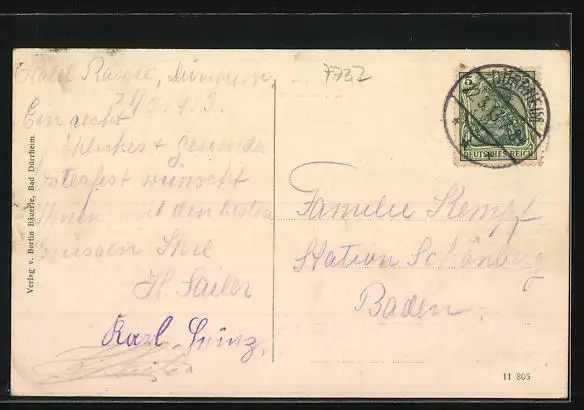 Hotel
Ein recht
fröhliches + gesundes
Osterfest wünscht
Ihnen mit den besten
Grüssen Ihre
H. Sailer
Karl
7732
5
DÜRRHEIM
DEUTSCHES REICH
Familie Kempf
Station Schönberg
Baden.
Verlag v. Bertin Bäuerle, Bad Dürrheim.
11 805